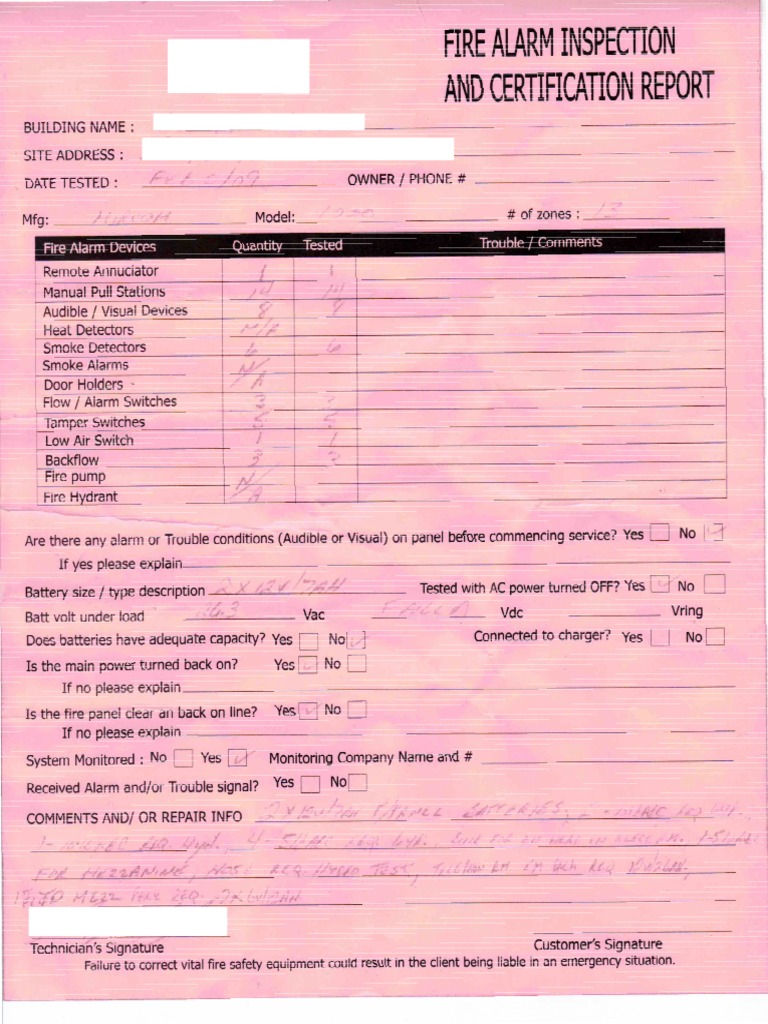 FIRE ALARM INSPECTION
AND CERTIFICATION REPORT
BUILDING NAME :
SITE ADDRESS :
DATE TESTED : /09 OWNER / PHONE #
Mfg: MIRCOM Model: # of zones : 13
Fire Alarm Devices Quantity Tested Trouble / Comments
Remote Annuciator 1 1
Manual Pull Stations 14 14
Audible / Visual Devices 8 8
Heat Detectors N/A
Smoke Detectors 6 6
Smoke Alarms N/
Door Holders A
Flow / Alarm Switches 3
Tamper Switches 5 5
Low Air Switch 1 1
Backflow 3 3
Fire pump N/
Fire Hydrant A
Are there any alarm or Trouble conditions (Audible or Visual) on panel before commencing service? Yes No
If yes please explain
Battery size / type description 2 X 12V/7AH Tested with AC power turned OFF? Yes No
Batt volt under load 26.3 Vac FAILED Vdc Vring
Does batteries have adequate capacity? Yes No Connected to charger? Yes No
Is the main power turned back on? Yes No
If no please explain
Is the fire panel clear an back on line? Yes No
If no please explain
System Monitored : No Yes Monitoring Company Name and #
Received Alarm and/or Trouble signal? Yes No
COMMENTS AND/ OR REPAIR INFO 2 X 12V/7AH BATTERIES, REQ
1- REQ 4- REQ
FOR MEZZANINE, HOSE REQ HYDRO TEST, REQ
MEZZ REQ
Technician's Signature Customer's Signature
Failure to correct vital fire safety equipment could result in the client being liable in an emergency situation.